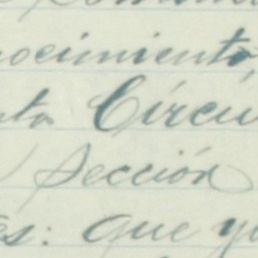 ocimiento,
nta Círcu
Sección
és: que y